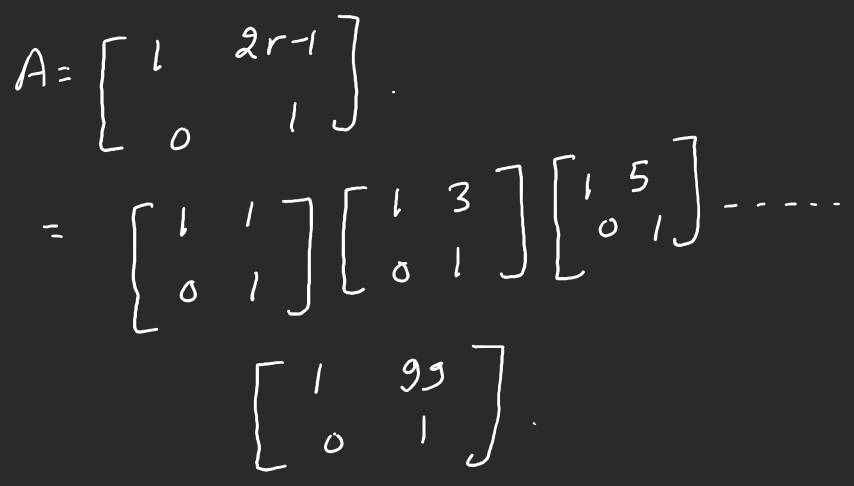 A = [ 1 2r-1 ; 0 1 ] .
= [ 1 1 ; 0 1 ] [ 1 3 ; 0 1 ] [ 1 5 ; 0 1 ] - - - - - -
[ 1 99 ; 0 1 ] .